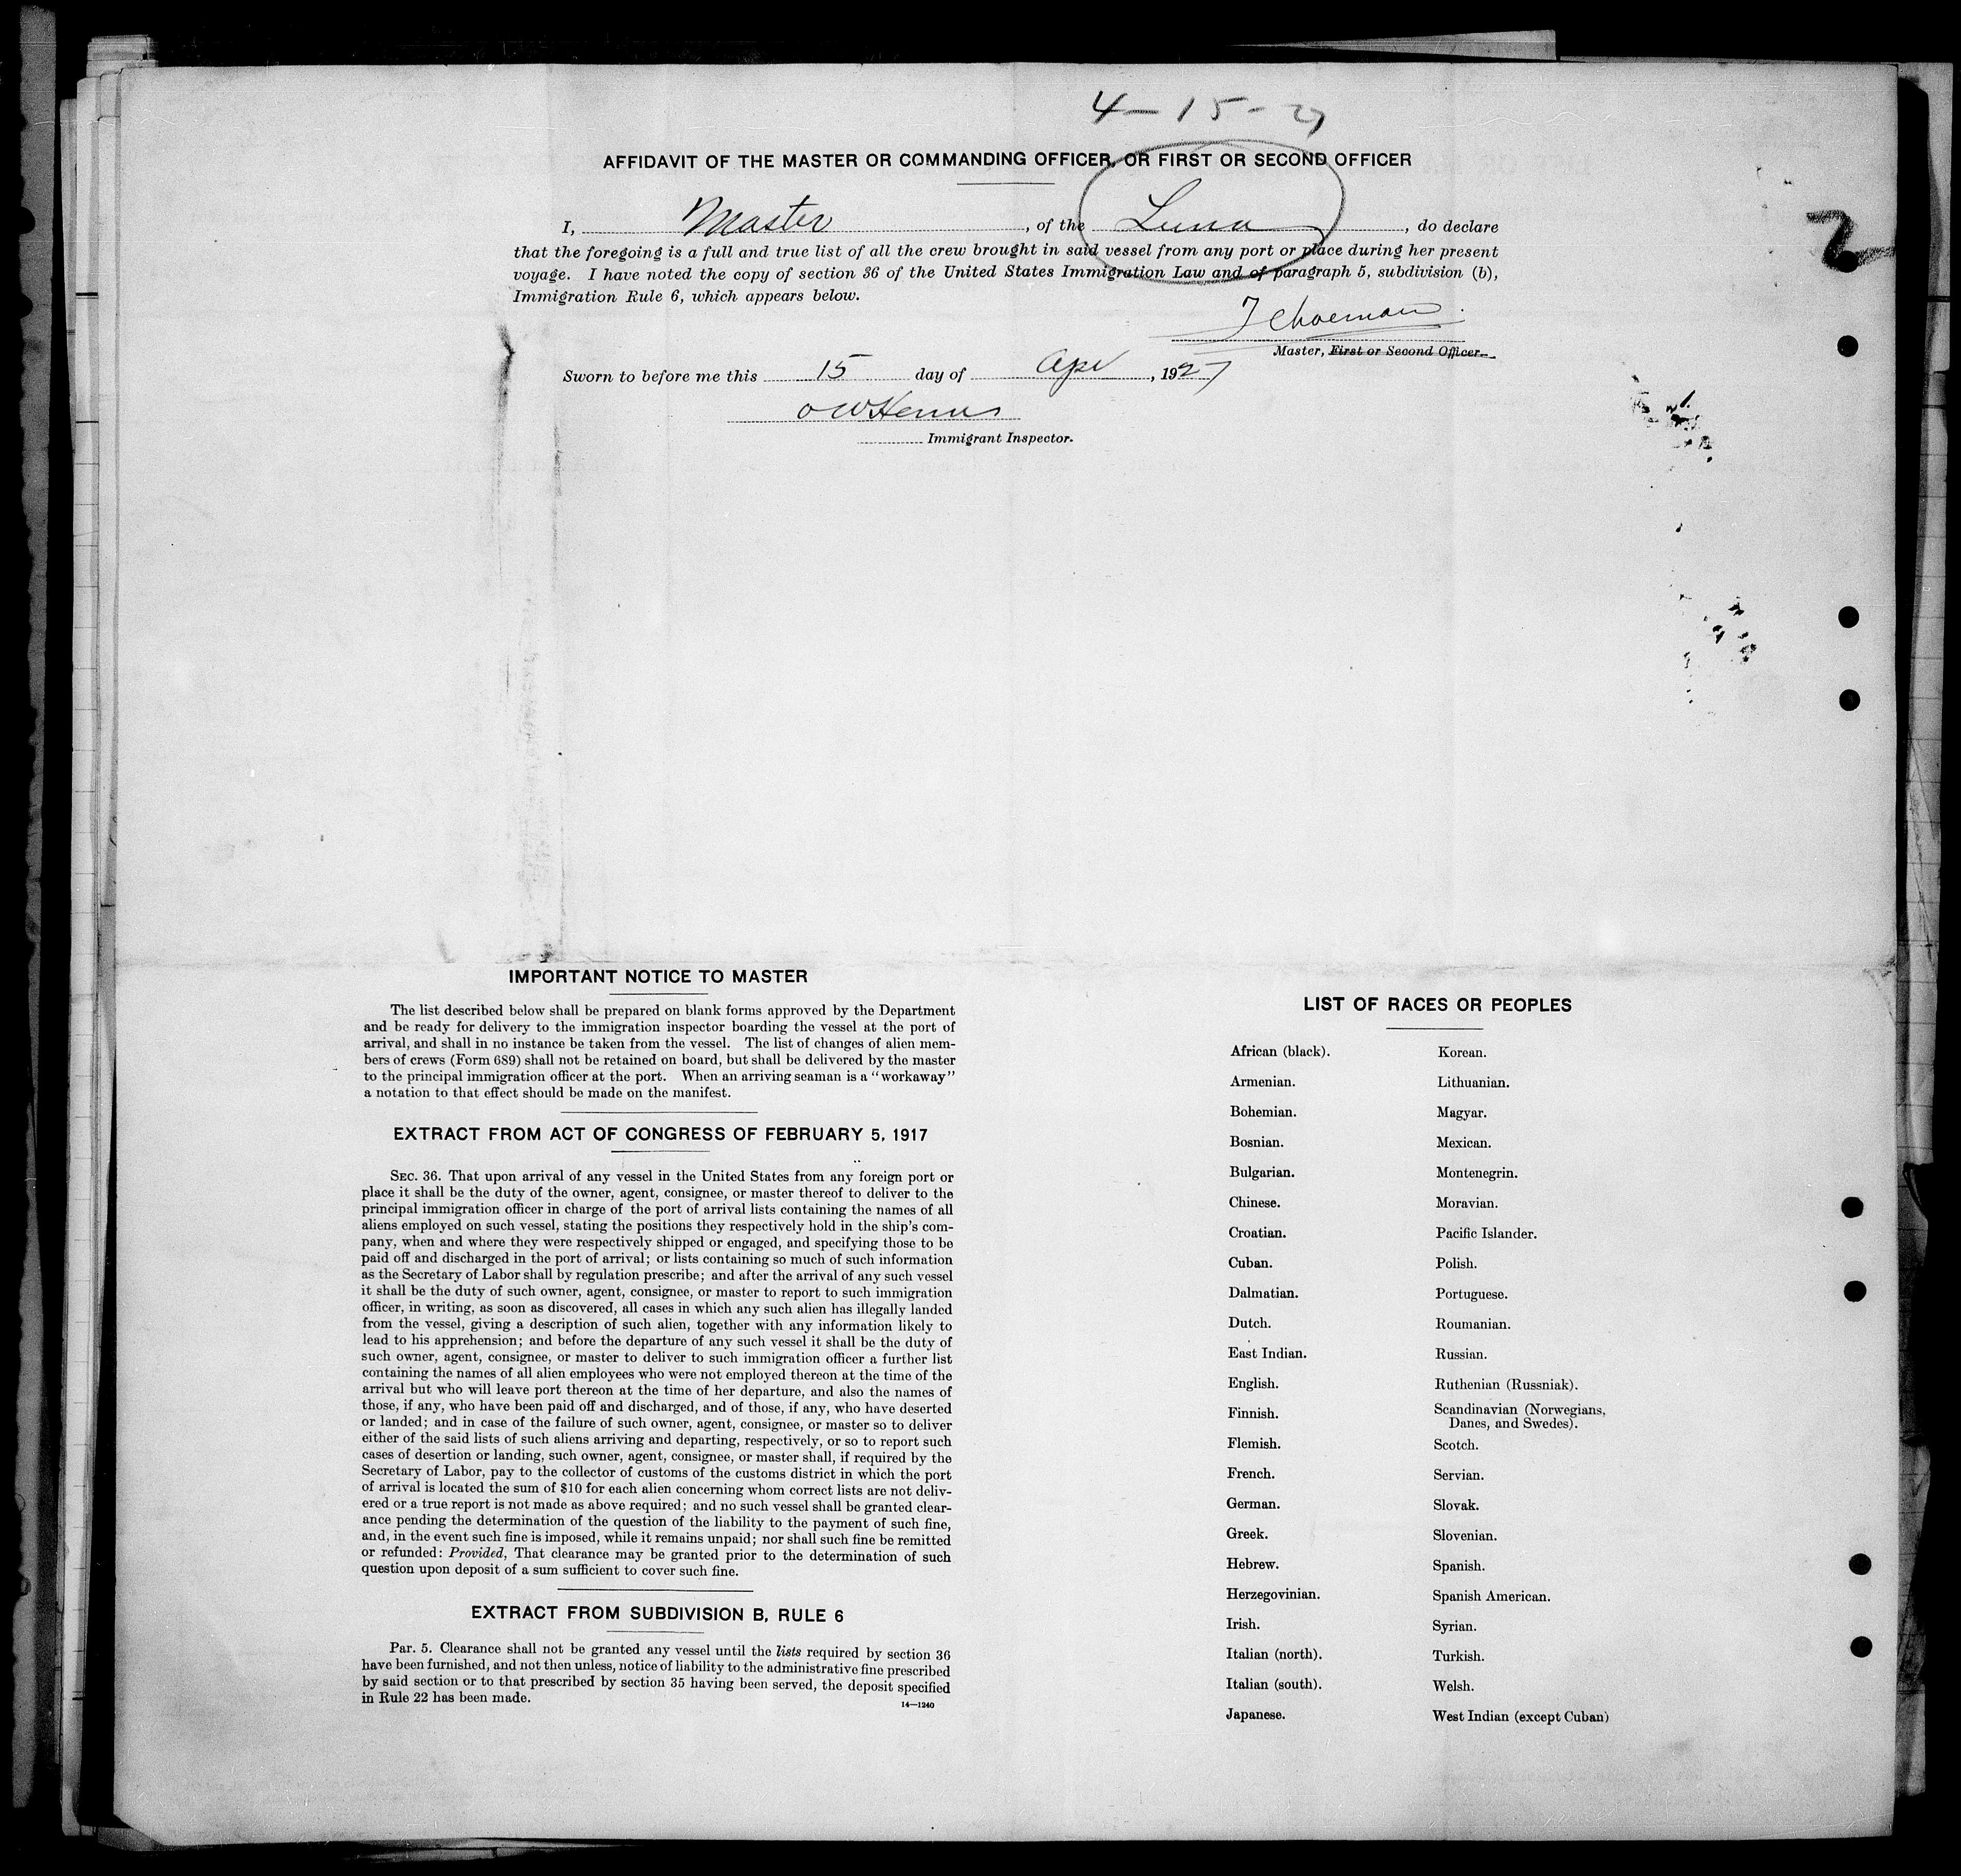 4-15-27
AFFIDAVIT OF THE MASTER OR COMMANDING OFFICER, OR FIRST OR SECOND OFFICER
I, Master, of the Luna, do declare
that the foregoing is a full and true list of all the crew brought in said vessel from any port or place during her present
voyage. I have noted the copy of section 36 of the United States Immigration Law and of paragraph 5, subdivision (b),
Immigration Rule 6, which appears below.
2
Master, First or Second Officer.
Sworn to before me this 15 day of Apr, 1927
Immigrant Inspector.
IMPORTANT NOTICE TO MASTER
The list described below shall be prepared on blank forms approved by the Department
and be ready for delivery to the immigration inspector boarding the vessel at the port of
arrival, and shall in no instance be taken from the vessel. The list of changes of alien mem-
bers of crews (Form 689) shall not be retained on board, but shall be delivered by the master
to the principal immigration officer at the port. When an arriving seaman is a "workaway"
a notation to that effect should be made on the manifest.
EXTRACT FROM ACT OF CONGRESS OF FEBRUARY 5, 1917
SEC. 36. That upon arrival of any vessel in the United States from any foreign port or
place it shall be the duty of the owner, agent, consignee, or master thereof to deliver to the
principal immigration officer in charge of the port of arrival lists containing the names of all
aliens employed on such vessel, stating the positions they respectively hold in the ship's com-
pany, when and where they were respectively shipped or engaged, and specifying those to be
paid off and discharged in the port of arrival; or lists containing so much of such information
as the Secretary of Labor shall by regulation prescribe; and after the arrival of any such vessel
it shall be the duty of such owner, agent, consignee, or master to report to such immigration
officer, in writing, as soon as discovered, all cases in which any such alien has illegally landed
from the vessel, giving a description of such alien, together with any information likely to
lead to his apprehension; and before the departure of any such vessel it shall be the duty of
such owner, agent, consignee, or master to deliver to such immigration officer a further list
containing the names of all alien employees who were not employed thereon at the time of the
arrival but who will leave port thereon at the time of her departure, and also the names of
those, if any, who have been paid off and discharged, and of those, if any, who have deserted
or landed; and in case of the failure of such owner, agent, consignee, or master so to deliver
either of the said lists of such aliens arriving and departing, respectively, or so to report such
cases of desertion or landing, such owner, agent, consignee, or master shall, if required by the
Secretary of Labor, pay to the collector of customs of the customs district in which the port
of arrival is located the sum of $10 for each alien concerning whom correct lists are not deliv-
ered or a true report is not made as above required; and no such vessel shall be granted clear-
ance pending the determination of the question of the liability to the payment of such fine,
and, in the event such fine is imposed, while it remains unpaid; nor shall such fine be remitted
or refunded: Provided, That clearance may be granted prior to the determination of such
question upon deposit of a sum sufficient to cover such fine.
EXTRACT FROM SUBDIVISION B, RULE 6
Par. 5. Clearance shall not be granted any vessel until the lists required by section 36
have been furnished, and not then unless, notice of liability to the administrative fine prescribed
by said section or to that prescribed by section 35 having been served, the deposit specified
in Rule 22 has been made.
14—1240
LIST OF RACES OR PEOPLES
African (black).
Armenian.
Bohemian.
Bosnian.
Bulgarian.
Chinese.
Croatian.
Cuban.
Dalmatian.
Dutch.
East Indian.
English.
Finnish.
Flemish.
French.
German.
Greek.
Hebrew.
Herzegovinian.
Irish.
Italian (north).
Italian (south).
Japanese.
Korean.
Lithuanian.
Magyar.
Mexican.
Montenegrin.
Moravian.
Pacific Islander.
Polish.
Portuguese.
Roumanian.
Russian.
Ruthenian (Russniak).
Scandinavian (Norwegians,
Danes, and Swedes).
Scotch.
Servian.
Slovak.
Slovenian.
Spanish.
Spanish American.
Syrian.
Turkish.
Welsh.
West Indian (except Cuban)